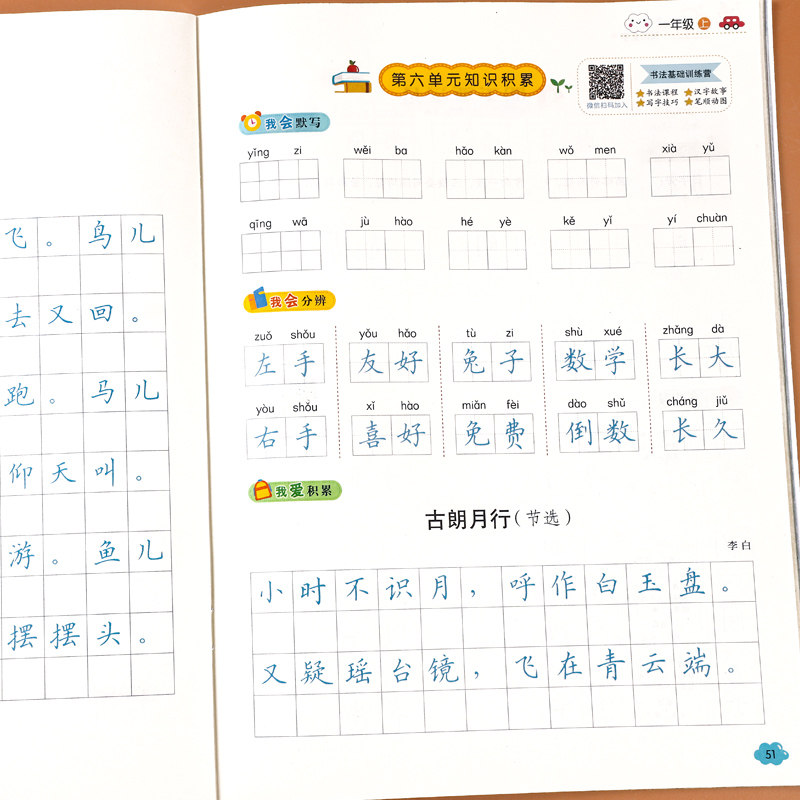 飞。鸟儿
去又回。
跑。马儿
仰天叫。
游。鱼儿
摆摆头。
一年级 上
第六单元知识积累
书法基础训练营
书法课程 汉字故事
写字技巧 笔顺动图
微信扫码加入
我会默写
yǐng zi wěi ba hǎo kàn wǒ men xià yǔ
qīng wā jù hào hé yè kě yǐ yí chuàn
我会分辨
zuǒ shǒu yǒu hǎo tù zi shù xué zhǎng dà
左手 友好 兔子 数学 长大
yòu shǒu xǐ hào miǎn fèi dào shǔ cháng jiǔ
右手 喜好 免费 倒数 长久
我爱积累
古朗月行(节选)
李白
小时不识月,呼作白玉盘。
又疑瑶台镜,飞在青云端。
51